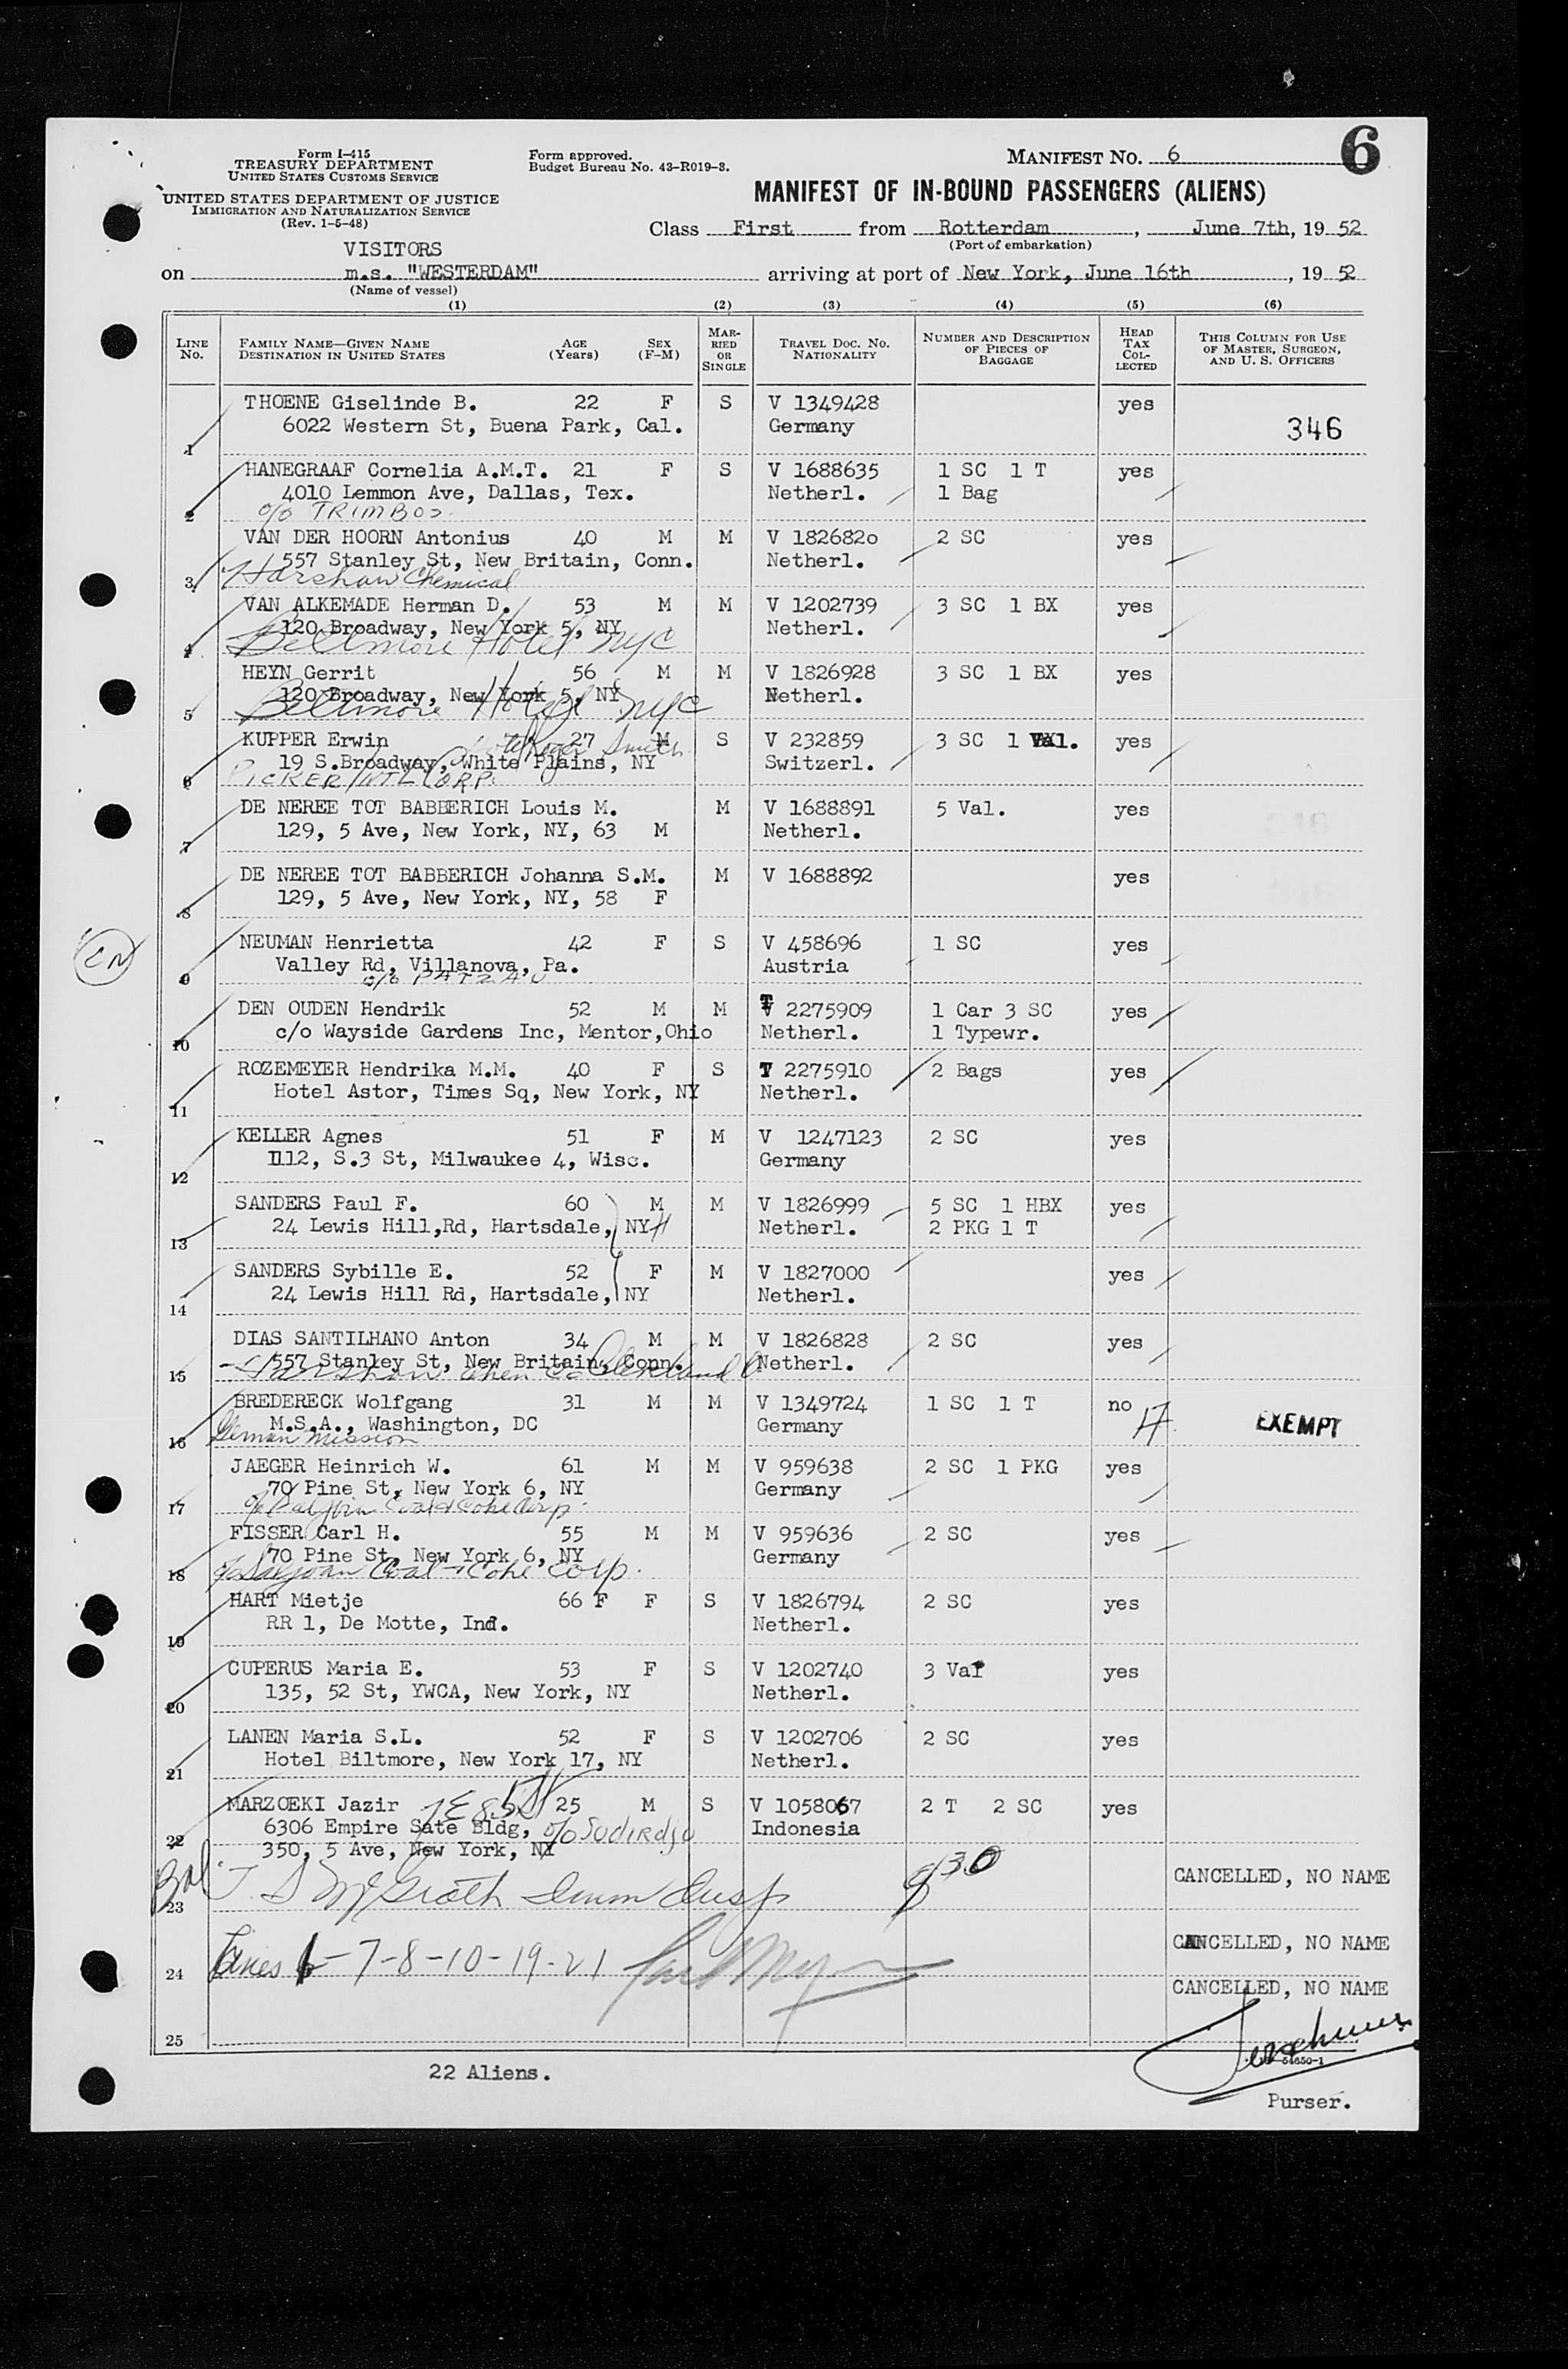 Form I-415
TREASURY DEPARTMENT
UNITED STATES CUSTOMS SERVICE
UNITED STATES DEPARTMENT OF JUSTICE
IMMIGRATION AND NATURALIZATION SERVICE
(Rev. 1-5-48)
Form approved.
Budget Bureau No. 43-R019-3.
MANIFEST NO. 6
6
MANIFEST OF IN-BOUND PASSENGERS (ALIENS)
Class First from Rotterdam, June 7th, 19 52
(Port of embarkation)
VISITORS
on m.s. "WESTERDAM" arriving at port of New York, June 16th, 19 52
(Name of vessel)
(1) (2) (3) (4) (5) (6)
LINE No. FAMILY NAME—GIVEN NAME DESTINATION IN UNITED STATES AGE (Years) SEX (F-M) MARRIED OR SINGLE TRAVEL DOC. NO. NATIONALITY NUMBER AND DESCRIPTION OF PIECES OF BAGGAGE HEAD TAX COLLECTED THIS COLUMN FOR USE OF MASTER, SURGEON, AND U. S. OFFICERS
THOENE Giselinde B. 22 F S V 1349428 yes
1 6022 Western St, Buena Park, Cal. Germany 346
HANEGRAAF Cornelia A.M.T. 21 F S V 1688635 1 SC 1 T yes
4010 Lemmon Ave, Dallas, Tex. Netherl. 1 Bag
2 c/o TRIMBOS
VAN DER HOORN Antonius 40 M M V 1826820 2 SC yes
557 Stanley St, New Britain, Conn. Netherl.
3 Harshaw Chemical
VAN ALKEMADE Herman D. 53 M M V 1202739 3 SC 1 BX yes
120 Broadway, New York 5, NY Netherl.
4 Biltmore Hotel NYC
HEYN Gerrit 56 M M V 1826928 3 SC 1 BX yes
120 Broadway, New York 5, NY Netherl.
5 Biltmore Hotel NYC
KUPPER Erwin 27 M S V 232859 3 SC 1 Val. yes
Hotel Roger Smith
19 S.Broadway, White Plains, NY Switzerl.
6 PICKER INTL CORP.
DE NEREE TOT BABBERICH Louis M. M V 1688891 5 Val. yes
7 129, 5 Ave, New York, NY, 63 M Netherl.
DE NEREE TOT BABBERICH Johanna S.M. M V 1688892 yes
8 129, 5 Ave, New York, NY, 58 F
CN
NEUMAN Henrietta 42 F S V 458696 1 SC yes
Valley Rd, Villanova, Pa. Austria
9 c/o PATZAU
DEN OUDEN Hendrik 52 M M T 2275909 1 Car 3 SC yes
10 c/o Wayside Gardens Inc, Mentor,Ohio Netherl. 1 Typewr.
ROZEMEYER Hendrika M.M. 40 F S T 2275910 2 Bags yes
11 Hotel Astor, Times Sq, New York, NY Netherl.
KELLER Agnes 51 F M V 1247123 2 SC yes
12 1112, S.3 St, Milwaukee 4, Wisc. Germany
SANDERS Paul F. 60 M M V 1826999 5 SC 1 HBX yes
13 24 Lewis Hill,Rd, Hartsdale, NY Netherl. 2 PKG 1 T
SANDERS Sybille E. 52 F M V 1827000 yes
14 24 Lewis Hill Rd, Hartsdale, NY Netherl.
DIAS SANTILHANO Anton 34 M M V 1826828 2 SC yes
557 Stanley St, New Britain, Conn. Netherl.
15 Harshaw Chem Co Cleveland O
BREDERECK Wolfgang 31 M M V 1349724 1 SC 1 T no
M.S.A., Washington, DC Germany EXEMPT
16 German Mission
JAEGER Heinrich W. 61 M M V 959638 2 SC 1 PKG yes
70 Pine St, New York 6, NY Germany
17 c/o Coal & Coke Corp.
FISSER Carl H. 55 M M V 959636 2 SC yes
70 Pine St, New York 6, NY Germany
18 c/o Coal + Coke Corp.
HART Mietje 66 F F S V 1826794 2 SC yes
19 RR 1, De Motte, Ind. Netherl.
CUPERUS Maria E. 53 F S V 1202740 3 Val yes
20 135, 52 St, YWCA, New York, NY Netherl.
LANEN Maria S.L. 52 F S V 1202706 2 SC yes
21 Hotel Biltmore, New York 17, NY Netherl.
MARZOEKI Jazir 25 M S V 1058067 2 T 2 SC yes
7 E 85 St
22 6306 Empire Sate Bldg, c/o Sudirdjo Indonesia
350, 5 Ave, New York, NY
CANCELLED, NO NAME
23 McGrath Imm Insp 930
CANCELLED, NO NAME
24 Lines 6-7-8-10-19-21
CANCELLED, NO NAME
25
54650-1
22 Aliens.
Purser.